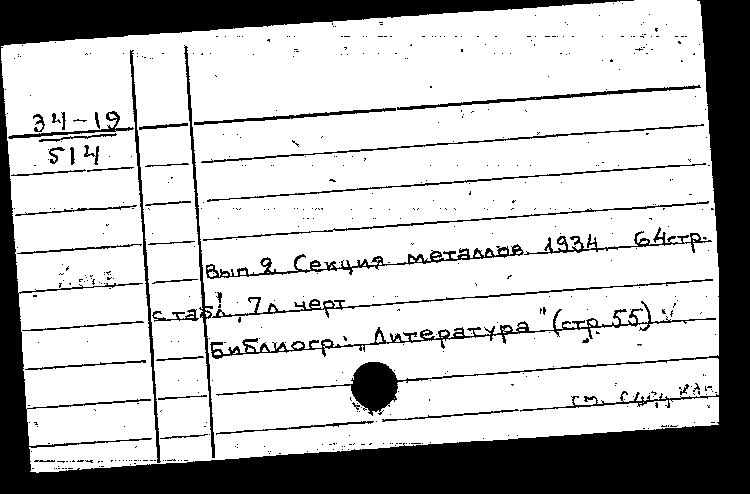 34-19
514
Вып. 2 Секция металлов. 1934 64 стр.
с табл., 7 л черт
Библиогр.: "Литература" (стр. 55)
см. след